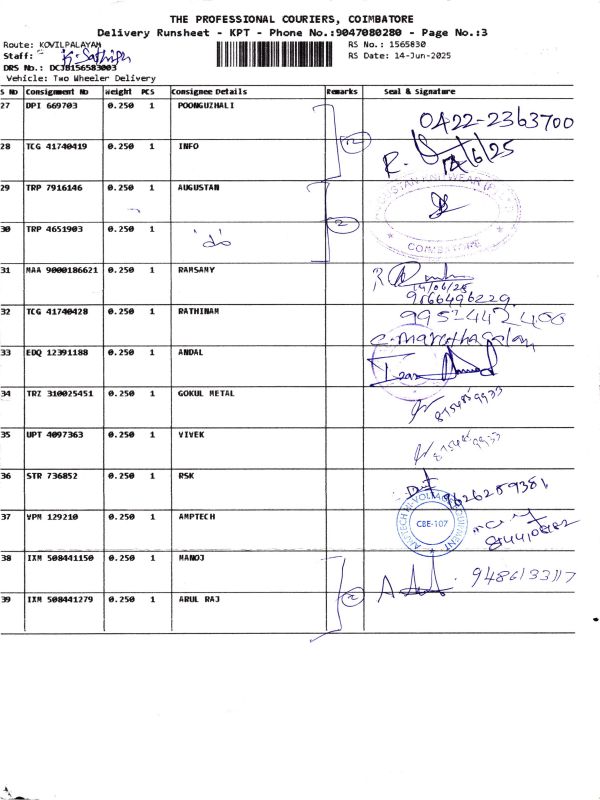 THE PROFESSIONAL COURIERS, COIMBATORE
Delivery Runsheet - KPT - Phone No.:9047080280 - Page No.:3
Route: KOVILPALAYAM RS No.: 1565830
Staff: K. Sathish RS Date: 14-Jun-2025
DRS No.: DCJB156583003
Vehicle: Two Wheeler Delivery
S No Consignment No Weight PCS Consignee Details Remarks Seal & Signature
27 DPI 669703 0.250 1 POONGUZHALI 0422-2363700
28 TCG 41740419 0.250 1 INFO 2 R. 14/6/25
29 TRP 7916146 0.250 1 AUGUSTAN
30 TRP 4651903 0.250 1 'do' 2 COIMBATORE
31 MAA 9000186621 0.250 1 RAMSAMY R 14/06/25
9566496229
32 TCG 41740428 0.250 1 RATHINAM
33 EDQ 12391188 0.250 1 ANDAL
34 TRZ 310025451 0.250 1 GOKUL METAL
35 UPT 4097363 0.250 1 VIVEK
36 STR 736852 0.250 1 RSK 9626259381
37 VPM 129210 0.250 1 AMPTECH CBE-107
38 IXM 508441150 0.250 1 MANOJ
39 IXM 508441279 0.250 1 ARUL RAJ 2